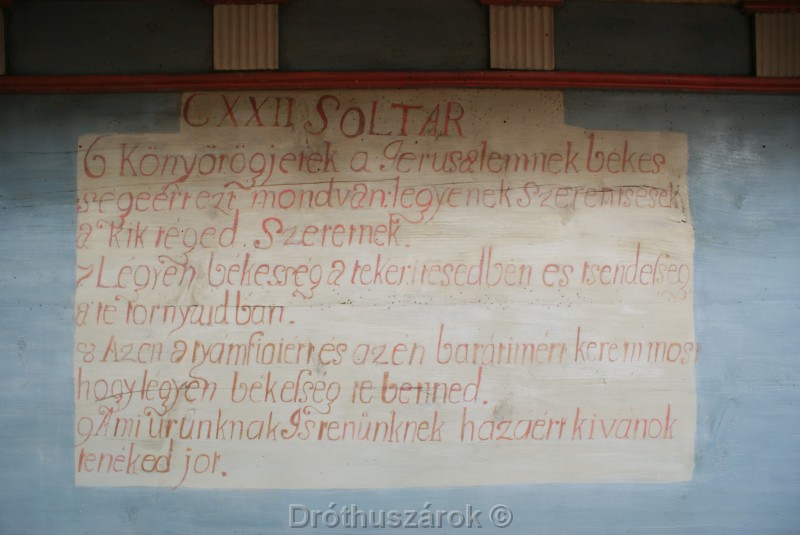 CXXII SOLTAR
6 Könyörögjetek a Jérusalemnek békes
ségeért ezt mondván: légyenek Szerentsések
a kik téged Szeretnek.
7 Légyen békesség a te keritésedben es tsendesség
a te tornyaidban.
8 Az én atyámfiaiért és az én barátimért kérem most
hogy légyen békesség te benned.
9 A mi Urunknak Istenünknek házáért kivánok
tenéked jot.
Dróthuszárok ©